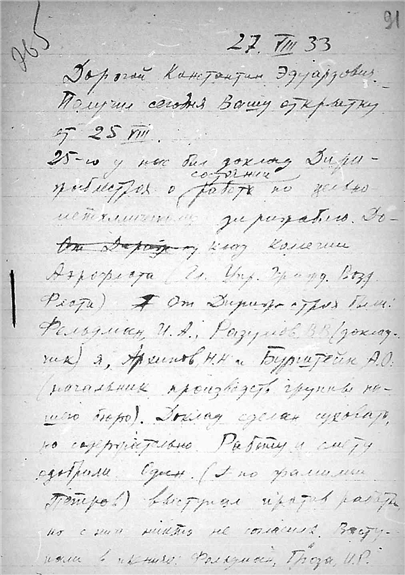 91
265
27. VIII 33
Дорогой Константин Эдуардович
Получил сегодня Вашу открытку
от 25 VIII.
25-го у нас был доклад Дири-
жаблестроя о состоянии работ по цельно
металлическому дирижаблю. До-
клад Колегии
Аэрофлота (Гл. Упр. Гражд. Возд
Флота) От Дирижаблестроя были:
Фельдман И. А., Разумов В.В. (доклад-
чик) я, Архипов НН и Бурштейн А.О.
(начальник производств группы на-
шего бюро). Доклад сделан
но Работу и смету
одобрили Один. (по фамилии
Петров) выступал против работы
но с ним никто не согласился. Высту-
пали в Фельдман,